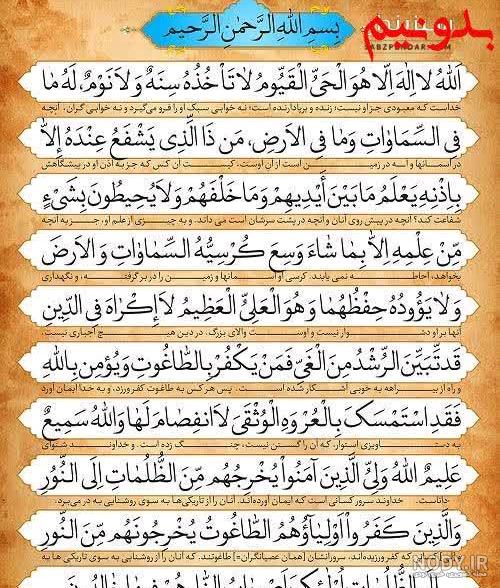 بدونیم
SABZPENDAR.COM
بِسمِ اللهِ الرَّحمٰنِ الرَّحیمِ
اَللهُ لا اِلهَ اِلّا هُوَ الْحَیُّ الْقَیُّومُ لا تَأْخُذُهُ سِنَهٌ وَ لا نَوْمٌ، لَهُ ما
خداست که معبودی جز او نیست؛ زنده و برپادارنده است؛ نه خوابی سبک او را فرو می‌گیرد و نه خوابی گران، آنچه
فِی السَّمَاوَاتِ وَمَا فِی الاَرضِ، مَن ذَا الَّذِی یَشْفَعُ عِنْدَهُ إِلَّا
در آسمانها و آنچه در زمین است از آن اوست، کیست آن کس که جز به اذن او در پیشگاهش
بِإِذْنِهِ یَعْلَمُ مَا بَیْنَ أَیْدِیهِمْ وَمَا خَلْفَهُمْ وَلاَ یُحِیطُونَ بِشَیْءٍ
شفاعت کند؟ آنچه در پیش روی آنان و آنچه در پشت سرشان است می داند. و به چیزی از علم او، جز به آنچه
مِّنْ عِلْمِهِ إِلاَّ بِمَا شَاءَ وَسِعَ کُرْسِیُّهُ السَّمَاوَاتِ وَالاَرضَ
بخواهد، احاطه نمی یابند. کرسی او آسمانها و زمین را در بر گرفته، و نگهداری
وَلاَ یَؤُودُهُ حِفْظُهُمَا وَهُوَ الْعَلِیُّ الْعَظِیمُ لاَ إِکْرَاهَ فِی الدِّینِ
آنها بر او دشوار نیست و اوست والای بزرگ. در دین هیچ اجباری نیست
قَد تَّبَیَّنَ الرُّشْدُ مِنَ الْغَیِّ فَمَنْ یَکْفُرْ بِالطَّاغُوتِ وَیُؤْمِن بِاللهِ
و راه از بیراهه به خوبی آشکار شده است. پس هر کس به طاغوت کفر ورزد، و به خدا ایمان آورد
فَقَدِ اسْتَمْسَکَ بِالْعُرْوَهِ الْوُثْقَیَ لاَ انفِصَامَ لَهَا وَاللهُ سَمِیعٌ
به دستاویزی استوار، که آن را گسستن نیست، چنگ زده است. و خداوند شنوای
عَلِیمٌ اللهُ وَلِیُّ الَّذِینَ آمَنُواْ یُخْرِجُهُم مِّنَ الظُّلُمَاتِ إِلَی النُّوُرِ
داناست. خداوند سرور کسانی است که ایمان آورده‌اند. آنان را از تاریکی‌ها به سوی روشنایی به در می‌برد.
وَالَّذِینَ کَفَرُواْ أَوْلِیَآؤُهُمُ الطَّاغُوتُ یُخْرِجُونَهُم مِّنَ النُّورِ
که کفر ورزیده‌اند، سرورانشان [همان عصیانگران=] طاغوتند، که آنان را از روشنایی به سوی تاریکی‌ها به
NODY.IR